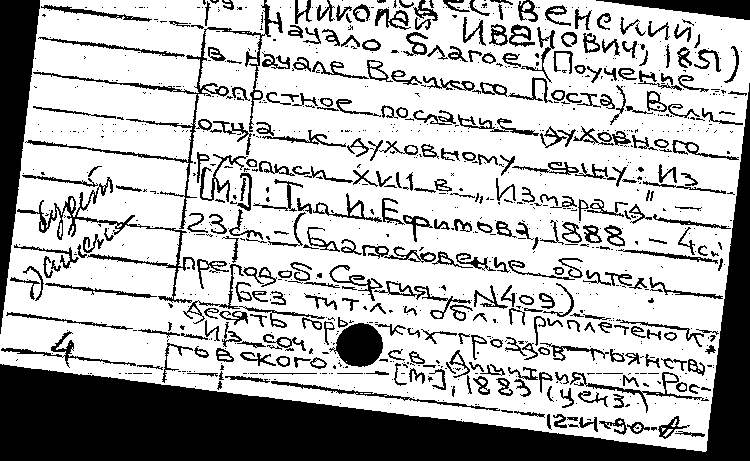 Николай Иванович, 1851)
Начало благое: (Поучение
в начале Великого Поста). Вели-
копостное послание духовного
отца к духовному сыну: Из
рукописи XVII в. „Измарагд". —
[М.]: Тип. И. Ефимова, 1888. — 4 с.;
23 см. — (Благословение обители
преподоб. Сергия; N409).
Без тит. л. и обл. Приплетено к:
Десять горьких гроздов пьянства:
Из соч. св. Димитрия м. Рос-
товского. [М.], 1883 (ценз.)
будет
4